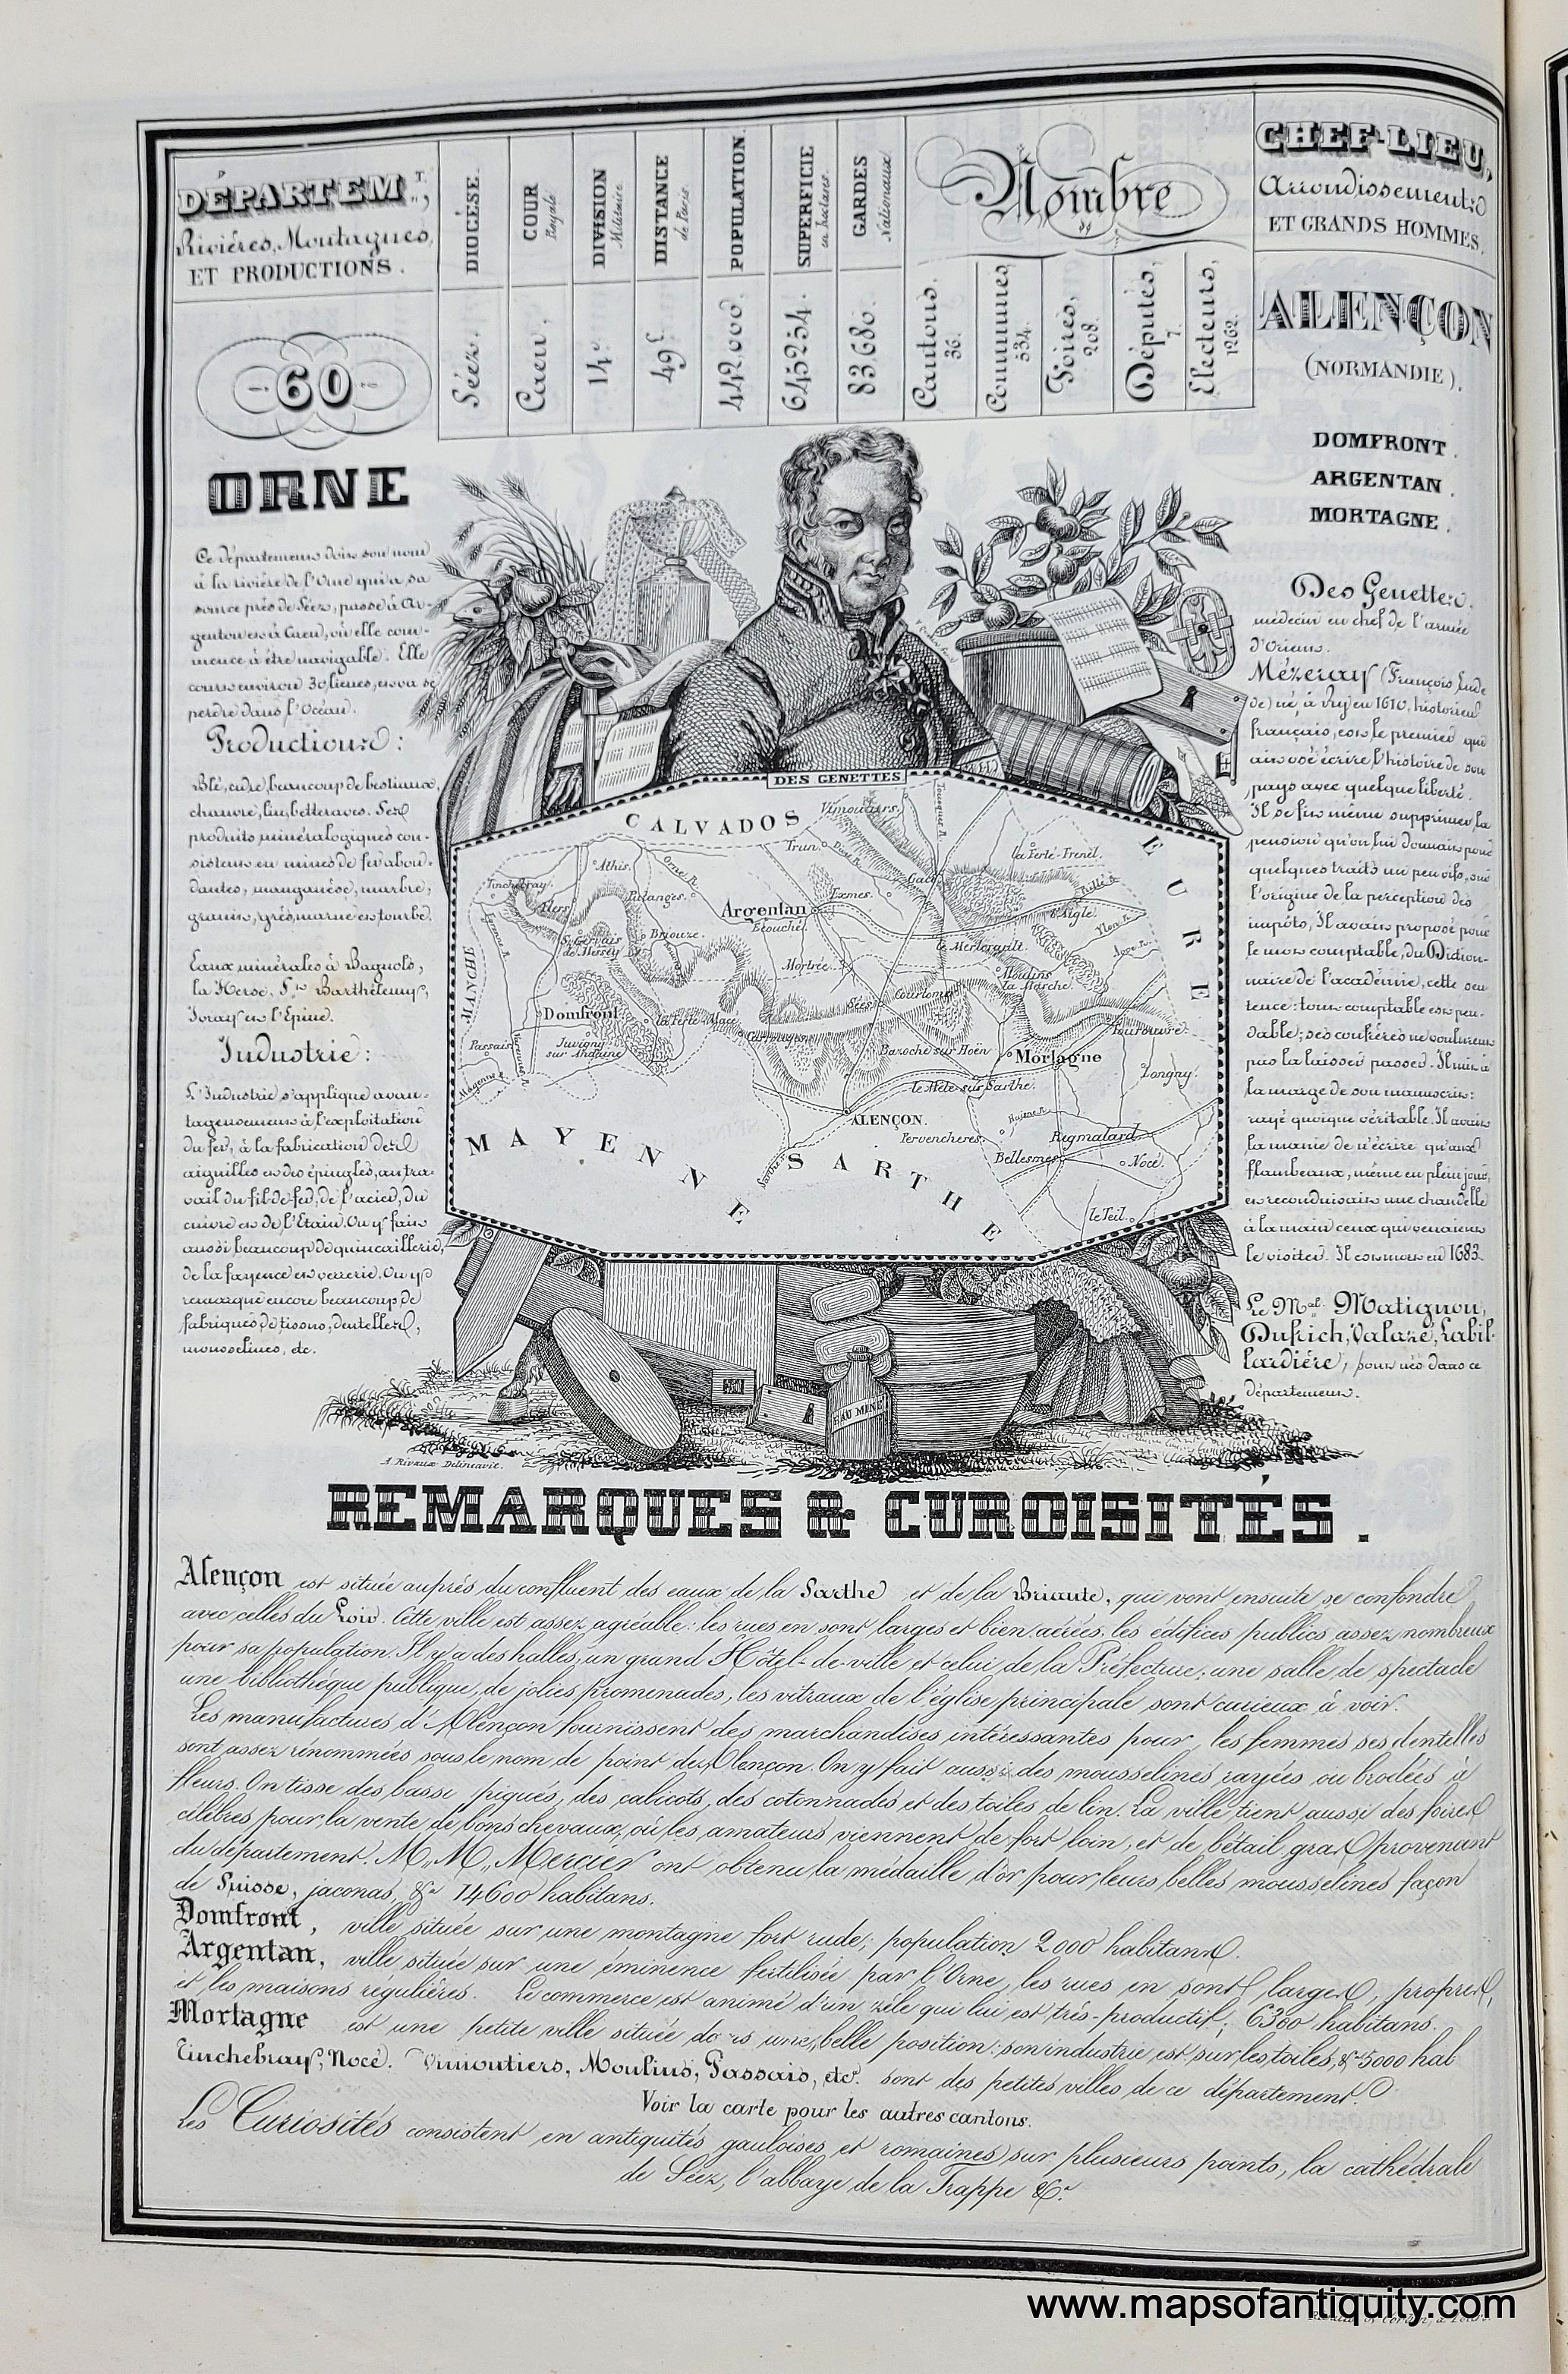 DÉPARTEM.T,
Rivières, Montagnes,
ET PRODUCTIONS.
DIOCÈSE.
Séez.
COUR
Royale
Caen,
DIVISION
Militaire
14e
DISTANCE
de Paris.
49 L.
POPULATION.
442.000.
SUPERFICIE
en hectares.
645254.
GARDES
Nationaux
83.680.
Nombre
de
Cantons,
36.
Communes
534.
Foires,
208.
Députés,
7.
Electeurs,
1262.
CHEF-LIEU,
Arrondissements
ET GRANDS HOMMES.
60
ORNE
Ce département doit son nom
à la rivière de l'Orne qui a sa
source près de Séez, passe à Ar-
gentan et à Caen, où elle com-
mence à être navigable. Elle
court environ 30 lieues, et va se
perdre dans l'Océan.
Productions:
Blé, cidre, beaucoup de bestiaux,
chanvre, lin, betteraves. Ses
produits minéralogiques con-
sistent en mines de fer abon-
dantes, manganèse, marbre,
granit, grès, marne et tourbe.
Eaux minérales à Bagnols,
la Herse, St. Barthélemy,
Joray et l'Epine.
Industrie:
L'Industrie s'applique avan-
tageusement à l'exploitation
du fer, à la fabrication des
aiguilles et des épingles, au tra-
vail du fil-de-fer, de l'acier, du
cuivre et de l'Etain. On y fait
aussi beaucoup de quincaillerie,
de la fayence et verrerie. On y
remarque encore beaucoup de
fabriques de tissus, dentelles,
mousselines, etc.
ALENÇON
(NORMANDIE).
DOMFRONT.
ARGENTAN.
MORTAGNE.
Des Genettes.
médecin en chef de l'armée
d'Orient.
Mézeray (François Eude
de) né, à Vry en 1610, historien
français, est le premier qui
ait osé écrire l'histoire de son
pays avec quelque liberté.
Il se fit même supprimer la
pension qu'on lui donnait pour
quelques traits un peu vifs, sur
l'origine de la perception des
impôts, Il avait proposé pour
le mot comptable, du Diction-
naire de l'académie, cette sen
tence: tout comptable est pen-
dable; ses confrères ne voulurent
pas la laisser passer. Il mit à
la marge de son manuscrit:
rayé quoique véritable. Il avait
la manie de n'écrire qu'aux
flambeaux, même en plein jour,
et reconduisait une chandelle
à la main ceux qui venaient
le visiter. Il est mort en 1683.
Le Mal. Matignon,
Dufrich, Valazé, Labil-
lardière, sont nés dans ce
département.
DES GENETTES
CALVADOS
EURE
MANCHE
MAYENNE
SARTHE
Vimoutiers.
Trun.
Dive R.
Touques R.
la Ferté-Frenel.
Athis.
Orne R.
Gacé
Rille R.
Tinchebray.
Flers
Putanges.
Argentan
Exmes.
Ecouché.
l'Aigle.
Yton R.
Avre R.
S. Gervais
de Messey
Briouze.
le Merlerault.
Mortrée.
Moulins
la Marche.
Sées
Courtomer
Varenne R.
Domfront.
la Ferté-Macé
Carrouges
Tourouvre.
Passais
Juvigny
sur Andaine
Bazoche sur Hoën
Mortagne
Longny.
Mayenne R.
le Mêle sur Sarthe.
ALENÇON.
Huisne R.
Pervencheres.
Regmalard
Bellesme
Nocé.
Sarthe R.
le Teil.
EAU MINE
A. Rivaux Delineavit.
REMARQUES & CUROISITÉS.
Alençon est située auprès du confluent des eaux de la Sarthe et de la Briante, qui vont ensuite se confondre
avec celles du Loir. Cette ville est assez agréable: les rues en sont larges et bien aérées, les édifices publics assez nombreux
pour sa population. Il y a des halles, un grand Hôtel-de-ville et celui de la Préfecture; une salle de spectacle
une bibliothèque publique, de jolies promenades, les vitraux de l'église principale sont curieux à voir.
Les manufactures d'Alençon fournissent des marchandises intéressantes pour les femmes ses dentelles
sont assez rénommées sous le nom de point des Alençon. On y fait aussi des mousselines rayées ou brodées à
fleurs. On tisse des bassi piqués, des calicots, des cotonnades et des toiles de lin. La ville tient aussi des foires
célèbres pour la vente de bons chevaux, où les amateurs viennent de fort loin, et de bétail gras provenant
du département. M,, M,, Mercier ont obtenu la médaille d'or pour leurs belles mousselines façon
de Suisse, jaconas, &a 14600 habitans.
Domfront, ville située sur une montagne fort rude; population 2000 habitans.
Argentan, ville située sur une éminence fertilisée par l'Orne, les rues en sont larges, propres,
et les maisons régulières. Le commerce est animé d'un zèle qui lui est très-productif; 6300 habitans.
Mortagne est une petite ville située dans une belle position: son industrie est sur les toiles, &a 5000 hab
Tinchebray, Nocé. Vimoutiers, Moulins, Passais, etc. sont des petites villes de ce département.
Voir la carte pour les autres cantons.
Les Curiosités consistent en antiquités gauloises et romaines sur plusieurs points, la cathédrale
de Séez, l'abbaye de la Trappe &a.
www.mapsofantiquity.com